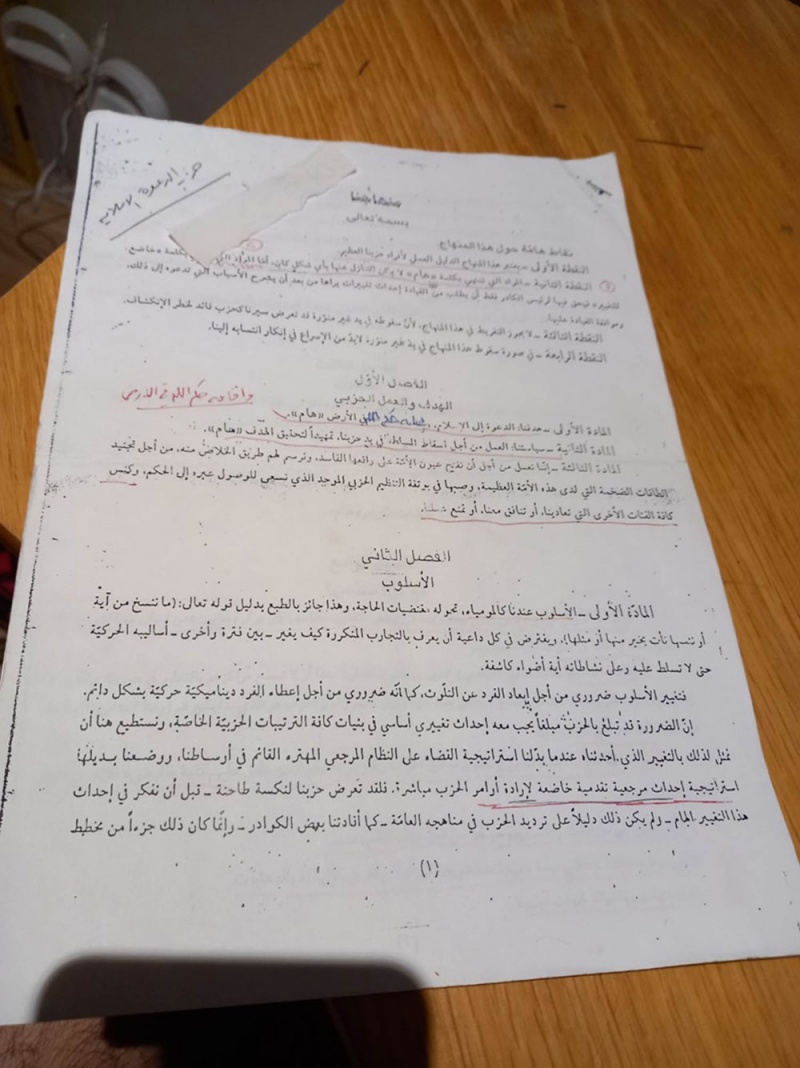 حزب الدعوة الاسلامية
بسمه تعالى
نقاط هامة حول هذا المنهاج
النقطة الأولى - يعتبر هذا المنهاج الدليل العملي لأفراد حزبنا العظيم.
النقطة الثانية - المواد التي تنتهي بكلمة «هام» لا يمكن التنازل عنها بأي شكل كان، أمّا المواد التي بكلمة «خاضع
للتغيير» فيحق فيها لرئيس الكادر فقط أن يطلب من القيادة إحداث تغييرات يراها من بعد أن يشرح الأسباب التي تدعوه إلى ذلك،
وموافقة القيادة عليها.
النقطة الثالثة - لا يجوز التفريط في هذا المنهاج، لأنّ سقوطه في يد غير منوّرة قد تعرض سيرنا كحزب قائد لخطر الإنكشاف.
النقطة الرابعة - في صورة سقوط هذا المنهاج في يد غير منورة لابدّ من الإسراع في إنكار انتسابه إلينا.
الفصل الأوّل
الهدف والعمل الحزبي
واقامة حكم الله في الارض
المادة الأولى - هدفنا: الدعوة إلى الإسلام، حكم الله في الأرض «هام».
المادة الثانية - سياستنا: العمل من أجل اسقاط السلطة في يد حزبنا، تمهيداً لتحقيق الهدف «هام».
المادة الثالثة - إننا نعمل من أجل أن نفتح عيون الأمّة على واقعها الفاسد، ونرسم لهم طريق الخلاص منه، من أجل تجنيد
الطاقات الضخمة التي لدى هذه الأمّة العظيمة، وصبها في بوتقة التنظيم الحزبي الموحد الذي نسعى للوصول عبره إلى الحكم، وكنس
كافة الفئات الأخرى التي تعادينا، أو تنافق معنا، أو تمنع عملنا.
الفصل الثاني
الأسلوب
المادّة الأولى - الأسلوب عندنا كالمومياء، تحوله مقتضيات الحاجة، وهذا جائز بالطبع بدليل قوله تعالى: (ما ننسخ من آية
أو ننسها نأت بخير منها أو مثلها)، ويفترض في كل داعية أن يعرف بالتجارب المتكررة كيف يغير - بين فترة وأخرى - أساليبه الحركيّة
حتى لا تسلط عليه وعلى نشاطاته أية أضواء كاشفة.
فتغيير الأسلوب ضروري من أجل إبعاد الفرد عن التلوث، كما انّه ضروري من أجل إعطاء الفرد ديناميكيّة حركيّة بشكل دائم.
إنّ الضرورة قد تبلغ بالحزب مبلغاً يجب معه إحداث تغييري أساسي في بنيات كافة الترتيبات الحزبيّة الخاصّة، ونستطيع هنا أن
نمثل لذلك بالتغيير الذي أحدثناه عندما بدّلنا استراتيجية القضاء على النظام المرجعي المهترء القائم في أوساطنا، ووضعنا بديلها
استراتيجية إحداث مرجعية تقدمية خاضعة لإرادة أوامر الحزب مباشرة. فلقد تعرض حزبنا لنكسة طاحنة - قبل أن نفكر في إحداث
هذا التغيير الهام - ولم يكن ذلك دليلاً على ترديد الحزب في مناهجه العامّة - كما أفادتنا بعض الكوادر - وإنّما كان ذلك جزءاً من مخطط
(١)